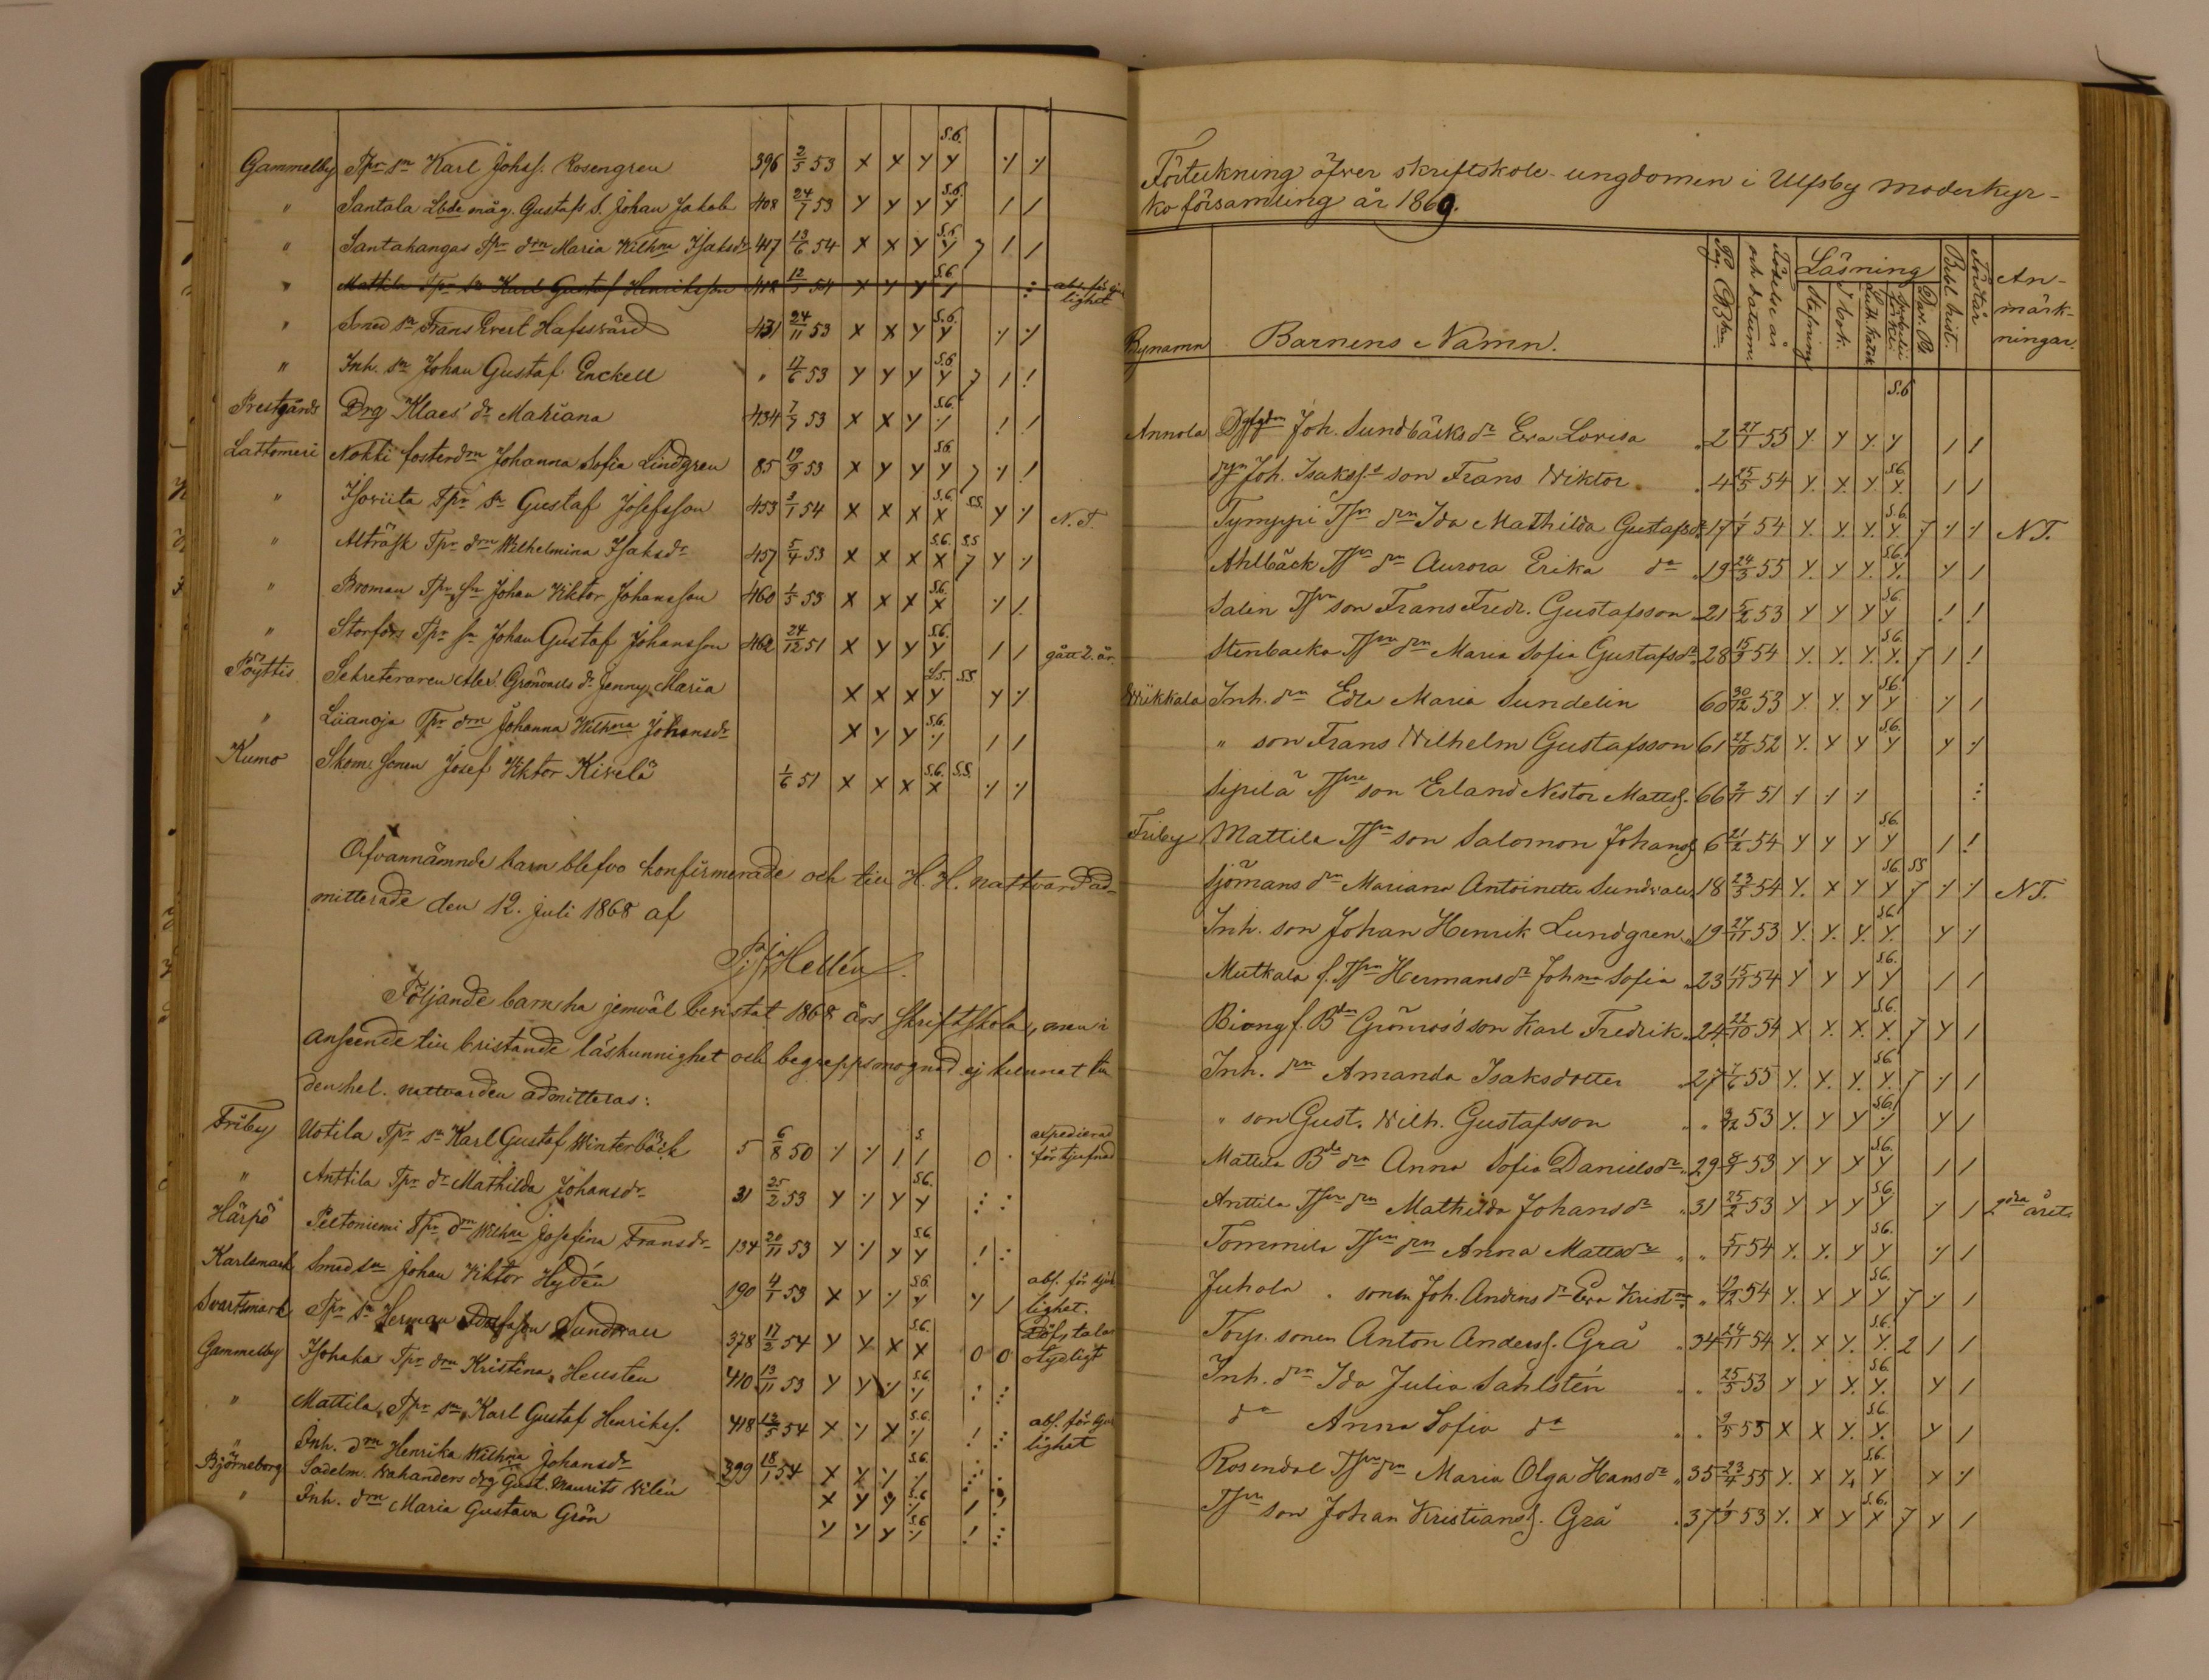 S.6.
Gammelby Tpr sn Karl Johsf. Rosengren 396 2/5 53 x x y y ·/· ·/·
" Santala Lbde måg. Gustafs S. Johan Jakob 408 24/7 53 y y y S.6. y / /
" Santahangas Tpr drn Maria Wilhna Isaksdr 417 13/6 54 x x y S.6. y 7 / /
" Mattila Tpr sn Karl Gustaf Henriksson 418 12/5 54 x y y S.6. : lighet
" Smed sn Frans Evert Hafssvärd 431 24/11 53 x x y S.6. y ·/· ·/·
" Inh. sn Johan Gustaf Enckell " 17/6 53 y y y S.6 y 7 / !
Prestgårds Drg Klaes' dr Mariana 434 7/7 53 x x y S.6. ·/· ! !
Lattomeri Nokki fosterdrn Johanna Sofia Lindgren 85 19/9 53 x y y S.6. y 7 ·/· !
" Isoviita Tpr sn Gustaf Josefsson 453 2/1 54 x x x S.6. x S.S. y ·/· N.T.
" Alträsk Tpr drn Wilhelmina Isaksdr 457 5/4 53 x x x S.6. x S.S 7 y ·/·
" Broman Tpr sn Johan Viktor Johansson 460 1/5 53 x x x S.6. x ·/· !
" Storfors Tpr sn Johan Gustaf Johansson 462 24/12 51 x y y S.6. y / / gått 2. år
Pöyttis Sekreteraren Alex. Grönvalls dr Jenny Maria x x x y S.S. y ·/·
" Liianoja Tpr drn Johanna Wilhna Johansdr x y y S.6. ·/· / /
Kumo Skom. sonen Josef Viktor Kivelä 1/6 51 x x x S.6. x S.S. ·/· ·/·
Ofvannämnde barn blefvo konfirmerade och till H. H. nattvard ad-
mitterade den 12. Juli 1868 af
Hellén
Följande barn ha jemväl bevistat 1868 års skriftskola, men i
anseende till bristande läskunnighet och begreppsmognad ej kunnat till
den hel. nattvarden admitteras:
Friby Uotila Tpr sn Karl Gustaf Winterbäck 5 6/8 50 ·/· ·/· / S. / 0 · expedierad för tjufnad
" Anttila Tpr dr Mathilda Johansdr 31 25/2 53 y ·/· y S.6. y : :
Härpö Peltoniemi Tpr drn Wilhna Josefina Fransdr 134 20/11 53 y ·/· y S.6 y ! :
Karlsmark Smedsn Johan Viktor Hydén 190 4/1 53 x y ·/· S.6. y y / abs. för sjuk lighet.
Svartsmark Tpr sn Herman Sundvall 378 17/2 54 y y x S.6. x 0 0 Döfs, talar otydligt
Gammelby Isohaka Tpr drn Kristina Hellsten 410 13/11 53 y y ·/· S.6. ·/· : :
" Mattila Tpr sn Karl Gustaf Henriksf. 418 12/5 54 x y x S.6. ·/· ! : abs. för sju lighet
" Inh. drn Henrika Wilhna Johansdr 399 18/1 54 x x ·/· S.6. ·/· : :
Björneborg Sadelm. Wahanders drg Gust. Maurits Vilén x y y S.6 ·/· / :
" Inh. drn Maria Gustava Grön y y y S.6 ·/· ! :
Förteckning öfver skriftskole-ungdomen i Ulfsby moderkyr-
ko församling år 1869.
Bynamn Barnens Namn. Pag. i Bken. Födelse år och datum. Läsning Stafning I bok. Luth. Katek. Dav. Ps Bibl. hist. Förstår An-märk-ningar.
Annola Joh. Sundbäcks dr Eva Lovisa 2 27/1 55 y. y y. S.6 y / /
Joh. Isakss.s son Frans Wiktor 4 25/5 54 y. x. y. S.6. y. / /
Tymppi Tprn drn Ida Mathilda Gustafsdr 17 1/7 54 y. y. y. S.6. y 7 ·/· ·/· N.T.
Ahlbäck Tprn drn Aurora Erika da 19 24/3 55 y. y y. S.6. y. y /
Salin Tprn son Frans Fredr. Gustafsson 21 5/2 53 y y y S.6. y ! !
Stenbacka Tprn drn Maria Sofia Gustafsdr 28 15/3 54 y. y. y. S.6. y. 7 / !
Wiikkala Inh. drn Edla Maria Sundelin 60 30/12 53 y. y. y S.6. y ·/· /
" son Frans Wilhelm Gustafsson 61 27/10 52 y. y y S.6. y y ·/·
Sipilä Tprn son Erland Nestor Mattsf. 66 2/11 51 ·/· ·/· ·/· :
Friby Mattila Tprn son Salomon Johansf. 6 21/2 54 y y y S.6. y / !
Sjömans drn Mariana Antoinetta Sundvall 18 23/3 54 y. x y S.6. y SS 7 ·/· ·/· N.T.
Inh. son Johan Henrik Lundgren 19 27/11 53 y. y. y. S.6. y. y ·/·
Mutkala f. Tprn Hermansdr Johna Sofia 23 15/11 54 y y y S.6. y / /
Biong f. Bdn Grönroos's son Karl Fredrik 24 22/10 54 x y. x. S.6. x. 7 y /
Inh. drn Amanda Isaksdotter 27 7/6 55 y. y. y. S.6. y. 7 ·/· /
" son Gust. Wilh. Gustafsson " 2/12 53 y. y y S.6. ·/· y /
Mattila Bde drn Anna Sofia Danielsdr 29 53 y y y S.6. y / /
Anttila Tprn drn Mathilda Johansdr 31 25/2 53 y y y S.6. y ·/· / 2 året.
Tommila Tprn drn Anna Mattsdr " 5/11 54 y. y. y S.6. y ·/· /
Juhola " sonen Joh. Anderss dr Eva Krist " 19/12 54 y. y y S.6. y 7 ·/· /
Torp. sonen Anton Andersf. Grå 34 24/11 54 y. x y. S.6. y. 2 / /
Inh. drn Ida Julia Sahlstén " 25/5 53 y y y. S.6. y. y /
da Anna Sofia da " 9/5 55 x x y. S.6. y. y /
Rosendal Tprn drn Maria Olga Hansdr 35 23/4 55 y. x y. S.6. y x ·/·
Tprn son Johan Kristiansf. Grå 37 53 y. x y S.6. x 7 y /